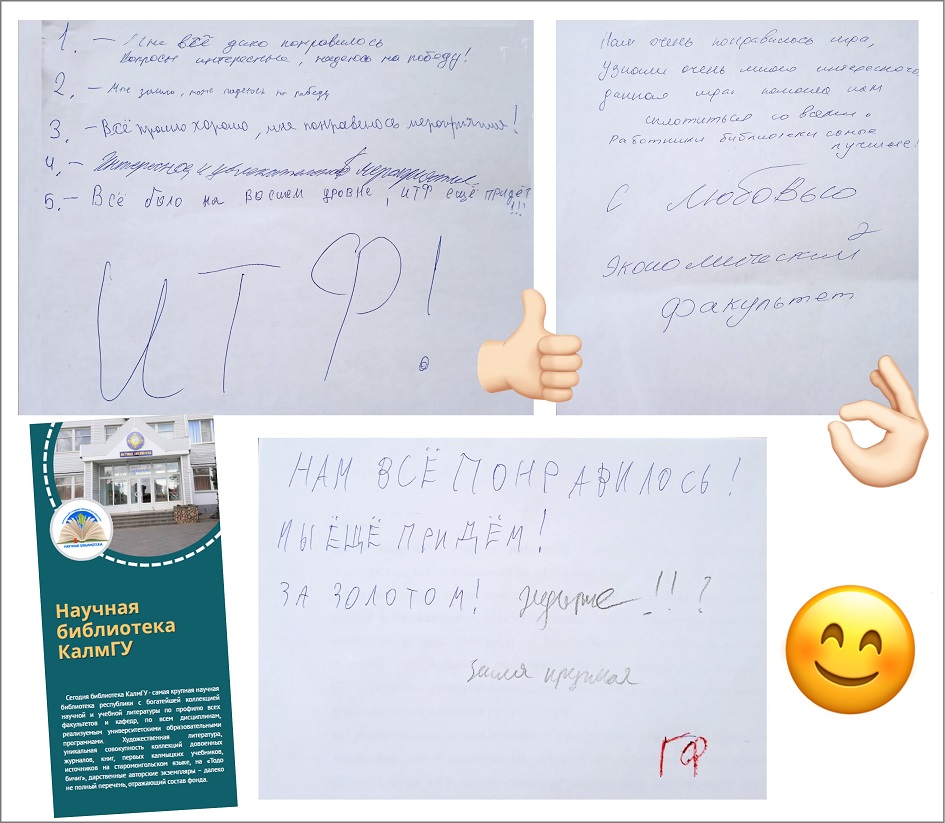 1. – Мне всё дико понравилось
Вопросы интересные, надеюсь на победу!
2. – Мне зашло, тоже надеюсь на победу
3. – Всё прошло хорошо, мне понравилось мероприятие!
4. – Интересное и увлекательное мероприятие
5. – Всё было на высшем уровне, ИТФ ещё придёт
!!!
ИТФ!
Нам очень понравилась игра,
Узнали очень много интересного,
данная игра помогла нам
сплотиться со всеми.
Работники библиотеки самые
лучшие!
С любовью
Экономический
факультет
НАУЧНАЯ БИБЛИОТЕКА
Научная
библиотека
КалмГУ
Сегодня библиотека КалмГУ - самая крупная научная
библиотека республики с богатейшей коллекцией
научной и учебной литературы по профилю всех
факультетов и кафедр, по всем дисциплинам,
реализуемым университетскими образовательными
программами. Художественная литература,
уникальная совокупность коллекций довоенных
журналов, книг, первых калмыцких учебников,
источников на старомонгольском языке, на «Тодо
бичиг», дарственные авторские экземпляры – далеко
не полный перечень, отражающий состав фонда.
НАМ ВСЁ ПОНРАВИЛОСЬ!
МЫ ЕЩЁ ПРИДЁМ!
ЗА ЗОЛОТОМ! ждите!!!?
Земля круглая
ГФ